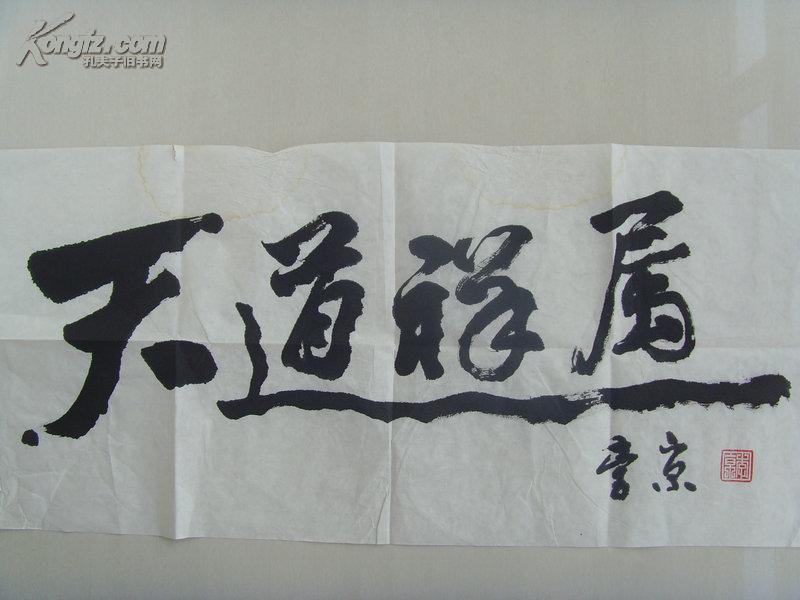 Kongfz.com
孔夫子旧书网
天道祥属
京